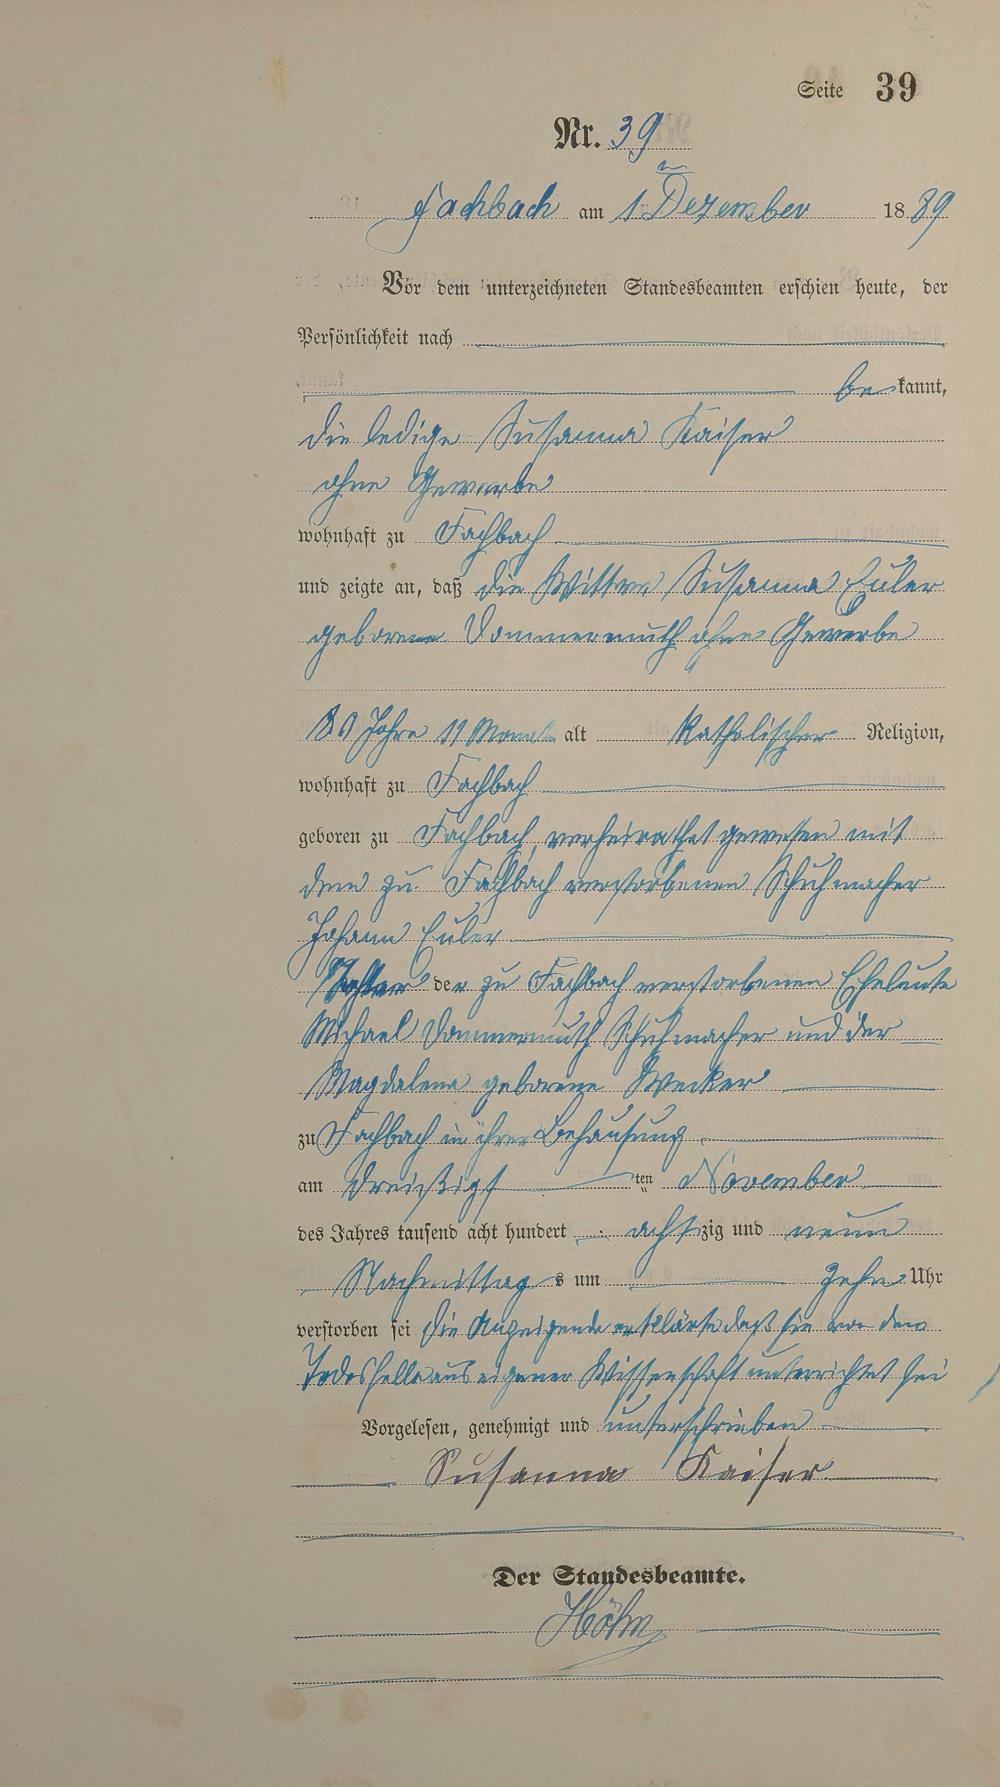 Seite 39
Nr. 39
Fachbach am 1. Dezember 1889
Vor dem unterzeichneten Standesbeamten erschien heute, der
Persönlichkeit nach
bekannt,
die ledige Susanna Kaiser
ohne Gewerbe
wohnhaft zu Fachbach
und zeigte an, daß die Wittwe Susanna Euler
geborene Dommermuth ohne Gewerbe
80 Jahre 11 Monate alt katholischer Religion,
wohnhaft zu Fachbach
geboren zu Fachbach, verheirathet gewesen mit
dem zu Fachbach verstorbenen Schuhmacher
Johann Euler
Tochter der zu Fachbach verstorbenen Eheleute
Michael Dommermuth Schuhmacher und der
Magdalena geborene Wecker
zu Fachbach in ihrer Behausung
am dreißigsten November
des Jahres tausend acht hundert achtzig und neun
Nachmittags um zehn Uhr
verstorben sei die Anzeigende erklärte daß sie von dem
Todesfalle aus eigener Wissenschaft unterrichtet sei
Vorgelesen, genehmigt und unterschrieben
Susanna Kaiser
Der Standesbeamte.
Höhn